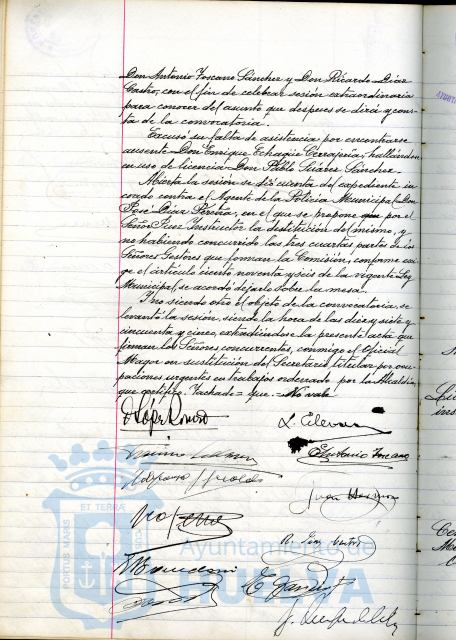 Don Antonio Toscano Sánchez y Don Ricardo Díaz
Castro, con el fin de celebrar sesión extraordinaria
para conocer del asunto que despues se dirá y cons-
ta de la convocatoria.
Excusó su falta de asistencia por encontrarse
ausente Don Enrique Echagüe Cerrapeña, hallándose
en uso de licencia Don Pablo Suárez Sánchez.
Abierta la sesión se dió cuenta del expediente in-
coado contra el Agente de la Policía Municipal Don
José Díaz Pereira, en el que se propone que por el
Señor Juez Instructor la destitución del mismo, y
no habiendo concurrido las tres cuartas partes de los
Señores Gestores que forman la Comisión, conforme exi-
ge el artículo ciento noventa y seis de la vigente Ley
Municipal, se acordó dejarlo sobre la mesa.
Y no siendo otro el objeto de la convocatoria, se
levantó la sesión, siendo la hora de las diez y siete y
cincuenta y cinco, extendiéndose la presente acta que
firman los Señores concurrentes, conmigo el Oficial
Mayor en sustitución del Secretario titular por ocu-
paciones urgentes en trabajos ordenado por la Alcaldía,
que certifico. Tachado = que = No vale
López Romero
Antonio Toscano
ET TERRA
PORTUS MARIS
Ayuntamiento de
HUELVA